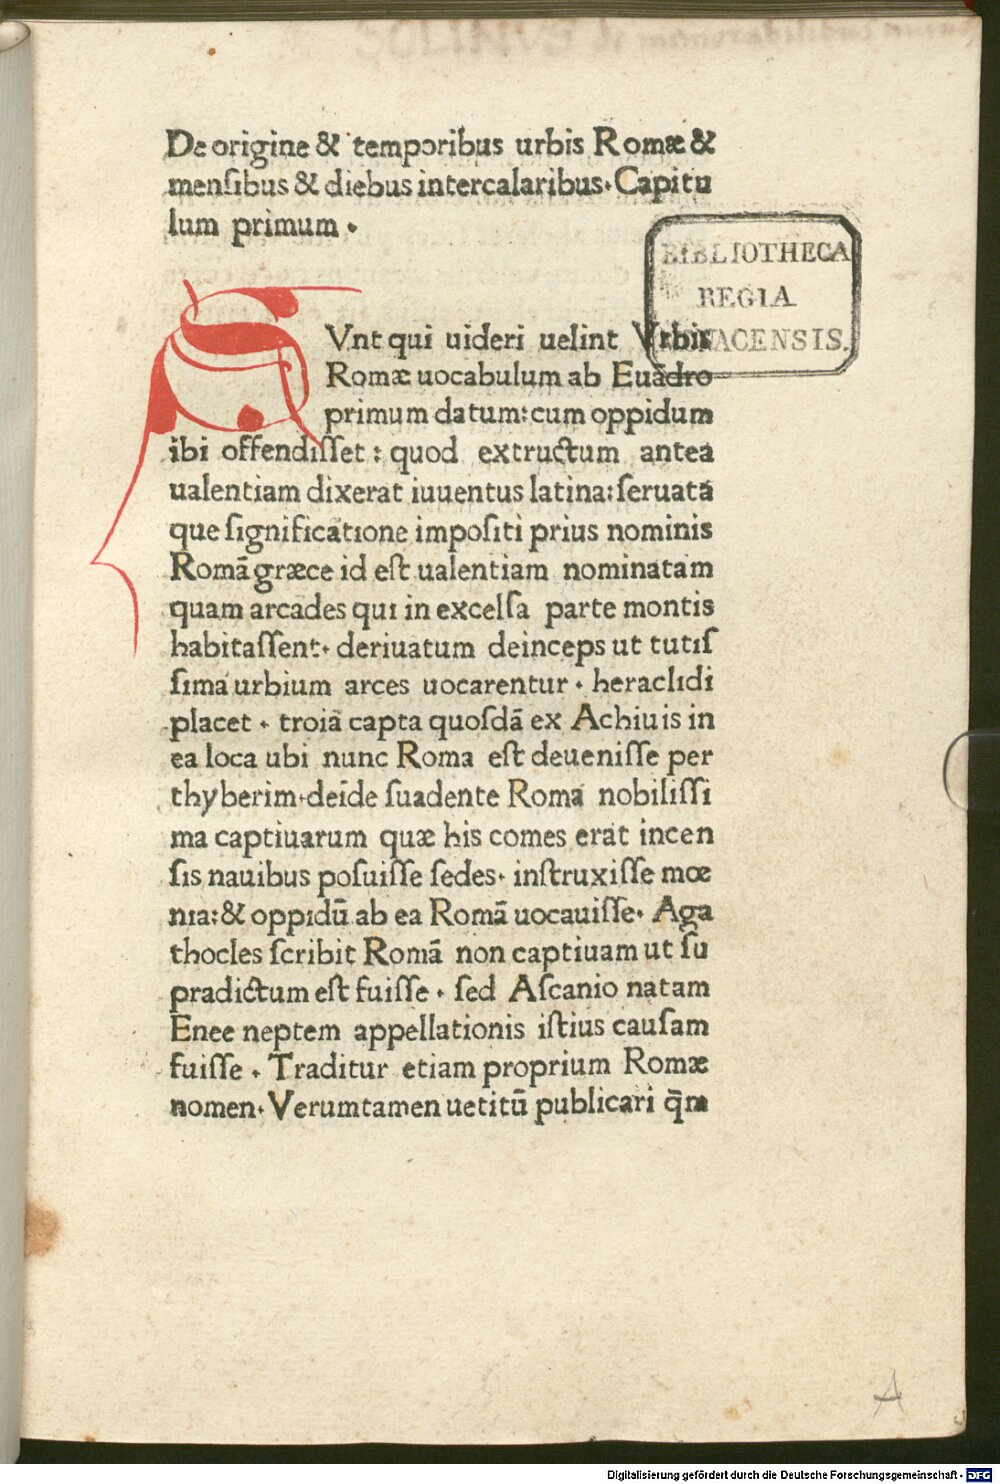 De origine & temporibus urbis Romæ &
mensibus & diebus intercalaribus. Capitu
lum primum.
BIBLIOTHECA
REGIA
MONACENSIS.
SVnt qui uideri uelint Vrbis
Romæ uocabulum ab Euãdro
primum datum: cum oppidum
ibi offendiſſet: quod extructum antea
ualentiam dixerat iuuentus latina: ſeruata
que ſignificatione impoſiti prius nominis
Romã græce id eſt ualentiam nominatam
quam arcades qui in excelſa parte montis
habitaſſent. deriuatum deinceps ut tutiſ
ſima urbium arces uocarentur. heraclidi
placet. troiã capta quoſdã ex Achiuis in
ea loca ubi nunc Roma eſt deueniſſe per
thyberim. deĩde ſuadente Roma nobiliſſi
ma captiuarum quæ his comes erat incen
ſis nauibus poſuiſſe ſedes. inſtruxiſſe mœ
nia: & oppidũ ab ea Romã uocauiſſe. Aga
thocles ſcribit Romã non captiuam ut ſu
pradictum eſt fuiſſe. ſed Aſcanio natam
Enee neptem appellationis iſtius cauſam
fuiſſe. Traditur etiam proprium Romæ
nomen. Verumtamen uetitũ publicari q̃m
A
Digitalisierung gefördert durch die Deutsche Forschungsgemeinschaft - DFG